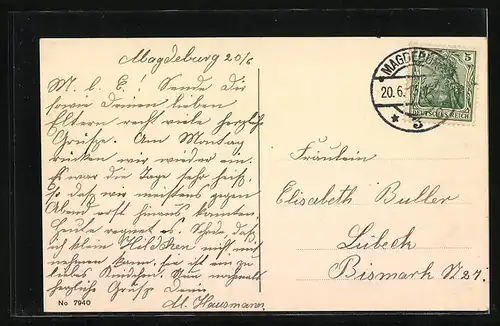 Magdeburg 20/6
M. l. E.! Sende Dir
sowie Deinen lieben
Eltern recht viele herzliche
Grüsse. Am Montag
rücken wir wieder ein.
Es war die Tage sehr heiß,
so daß wir meistens gegen
Abend erst hinaus konnten.
Heute regnet es. Schade daß
ich klein Hildchen nicht mit
nehmen kann, sie ist ein zu
liebes Kindchen. Nun nochmals
herzliche Grüße Dein
M. Hausmann
No 7940
MAGDEBURG
20.6.
* 3
5
DEUTSCHES REICH
Fräulein
Elisabeth Buller
Lübeck
Bismark St 27.